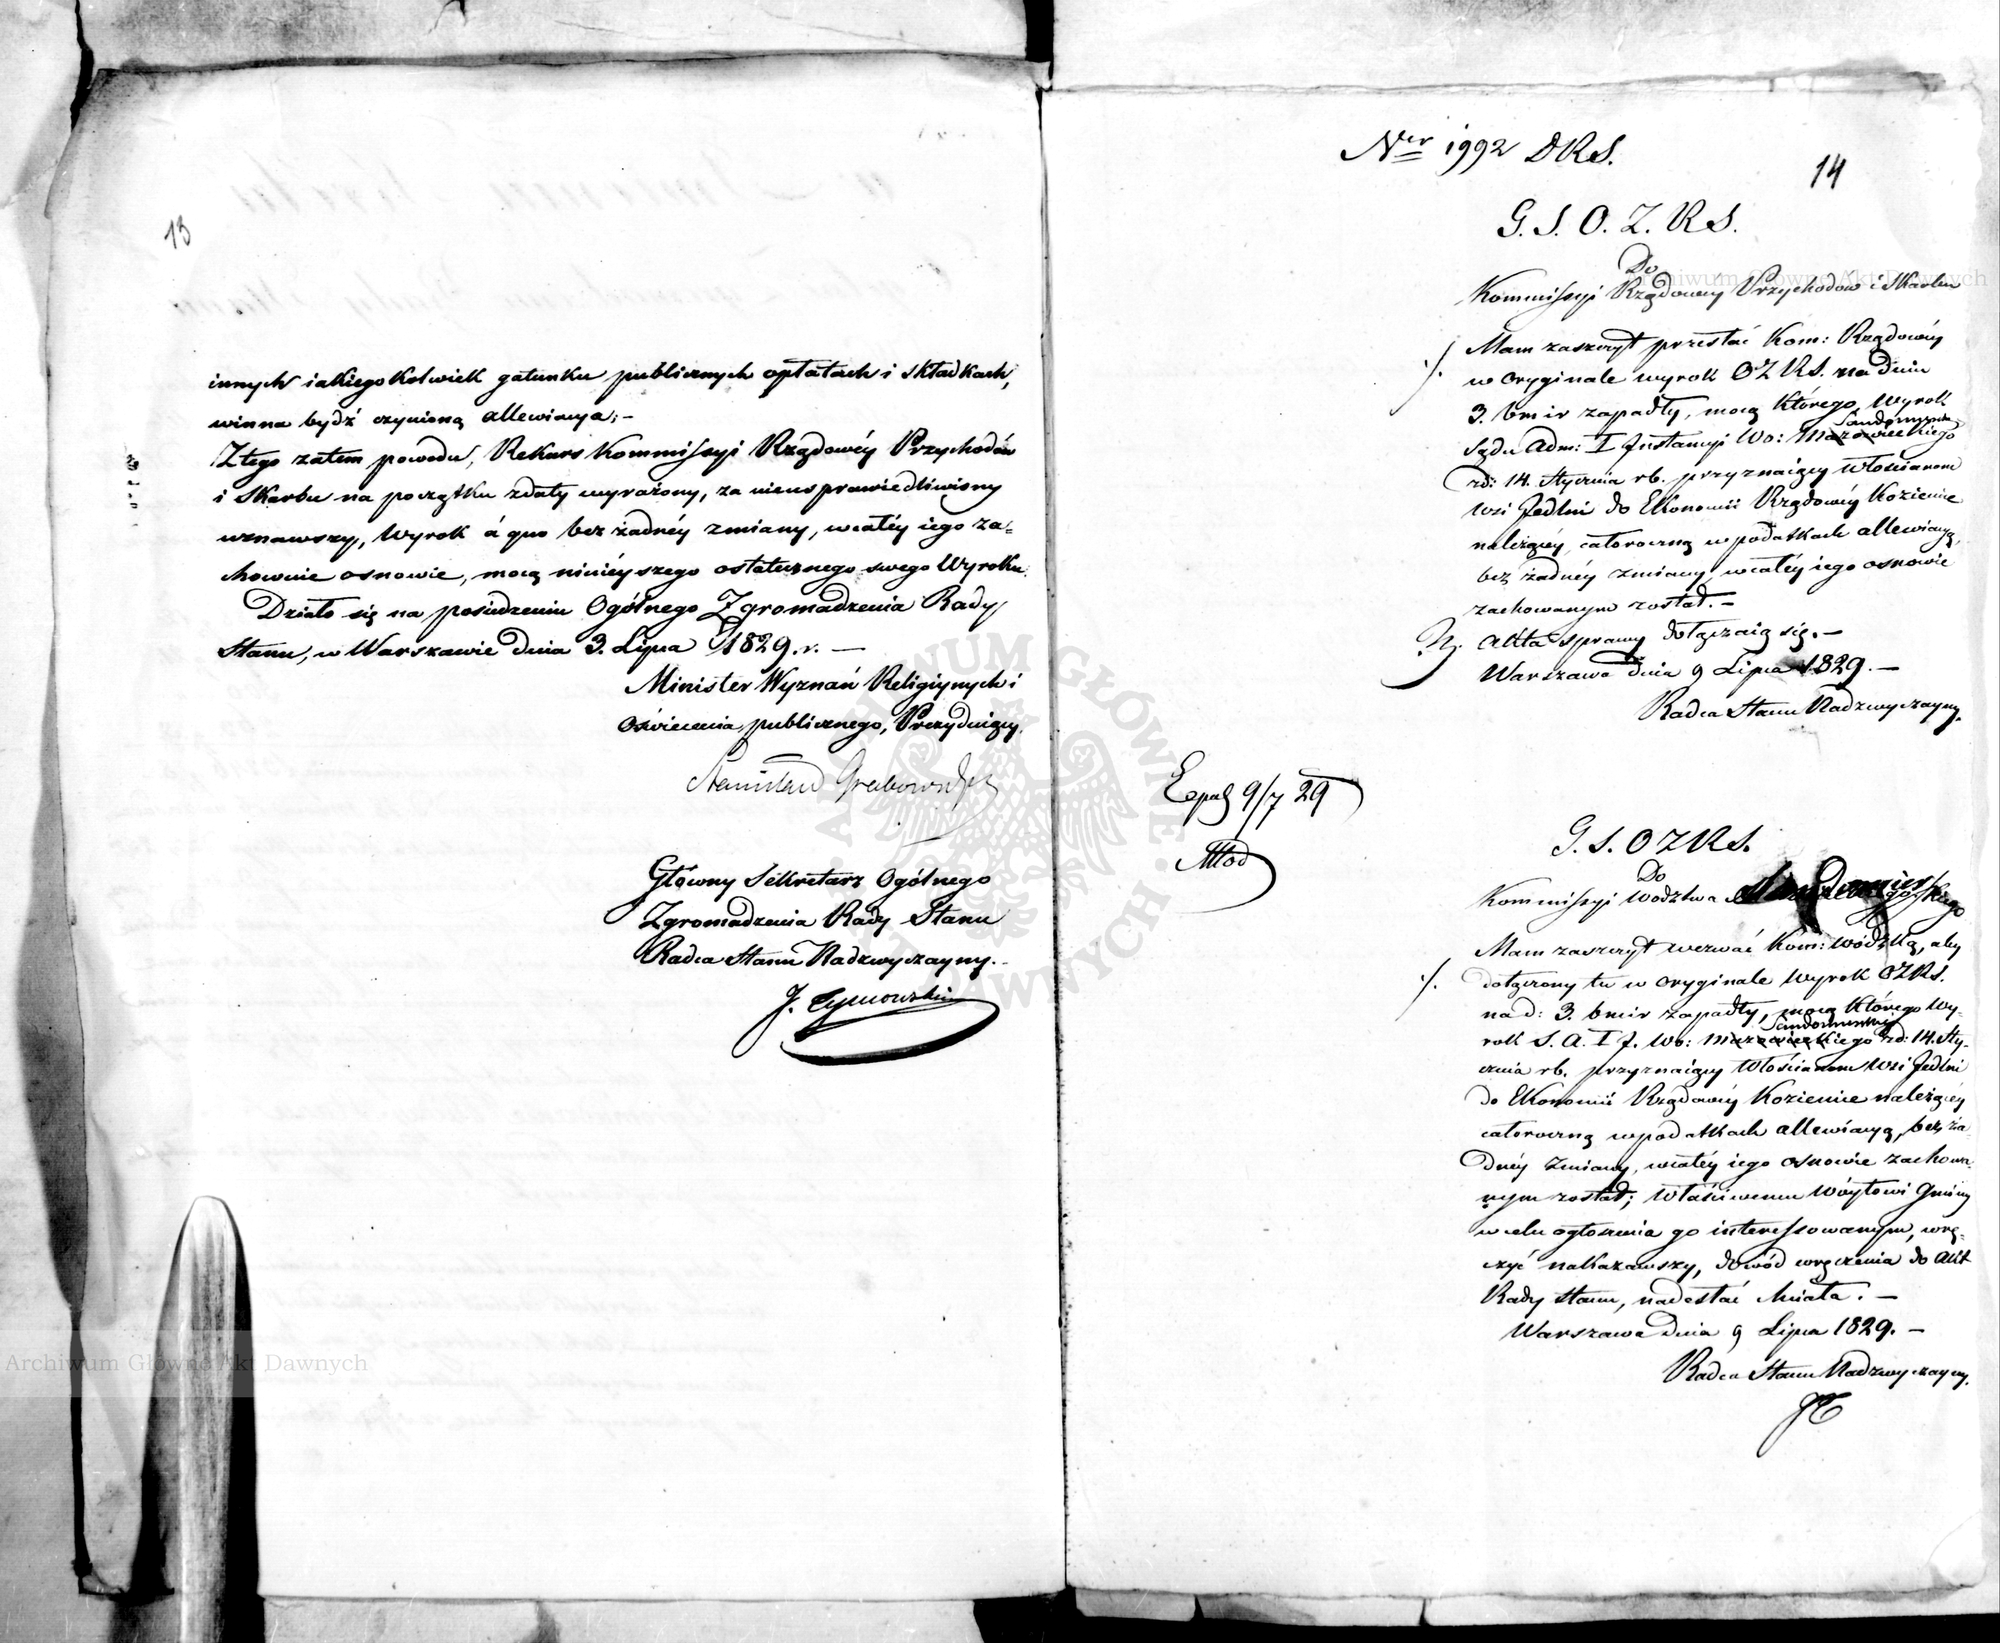 13
innych iakiegokolwiek gatunku publicznych opłatach i składkach,
winna bydź czynioną allewiacya;-
Z tego zatem powodu, Rekurs Kommissyi Rządowéy Przychodów
i Skarbu na początku zdały wyrażony, za nieusprawiedliwiony
uznawszy, Wyrok á quo bez żadnéy zmiany, w całéy iego za=
chowuie osnowie, mocą ninieyszego ostatecznego swego Wyroku.
Działo się na posiedzeniu Ogólnego Zgromadzenia Rady
Stanu, w Warszawie dnia 3. Lipca 1829. r. —
Minister Wyznań Religiynych i
Oświecenia publicznego, Prezyduiący.
Stanisław Grabowski
Główny Sekretarz Ogólnego
Zgromadzenia Rady Stanu
Radca Stanu Nadzwyczayny.
J. Tymowski
Ner 1992 DRS.
14
G. S. O. Z. R S.
Do
Kommissyi Rządowey Przychodów i Skarbu
Mam zaszczyt przesłać Kom: Rządowéy
w oryginale wyrok OZRS. na dniu
3. bm ir zapadły, mocą którego, wyrok
Sandomirsk
Sądu Adm: I Instancyi Wo: Mazowieckiego
zd: 14. Stycznia rb. przyznaiący włościanom
wsi Jedlni do Ekonomii Rządowéy Kozienice
należącéy, całoroczną w podatkach allewiacyą,
bez żadnéy zmiany, w całéy iego osnowie
zachowanym został. –
N. Akta sprawy dołączaią się. –
Warszawa dnia 9 Lipca 1829. –
Radca Stanu Nadzwyczayny.
Exp 9/7 29
Młod
G. S. O Z R S.
Do
Kommissyi Wodztwa Sandomirskiego
Mam zaszczyt wezwać Kom: Wódzką, aby
dołączony tu w oryginale wyrok OZRS.
na d: 3. bmir zapadły, mocą którego Wy-
Sandomirsk
rok S. A. I J. Wo: Mazowieckiego zd: 14. Sty-
cznia rb. przyznaiący Włościanom wsi Jedlni
do Ekonomii Rządowéy Kozienice należącéy
całoroczną w podatkach allewiacyą, bez ża-
dnéy zmiany, w całéy iego osnowie zachowa-
nym został; właściwemu Wóytowi Gminy
w celu ogłoszenia go interessowanym, wrę-
czyć nakazawszy, dowód wręczenia do Akt
Rady Stanu, nadesłać chciała. –
Warszawa dnia 9 Lipca 1829. –
Radca Stanu Nadzwyczayny.
JT
Archiwum Główne Akt Dawnych
Archiwum Główne Akt Dawnych
ARCHIWUM GŁÓWNE AKT DAWNYCH